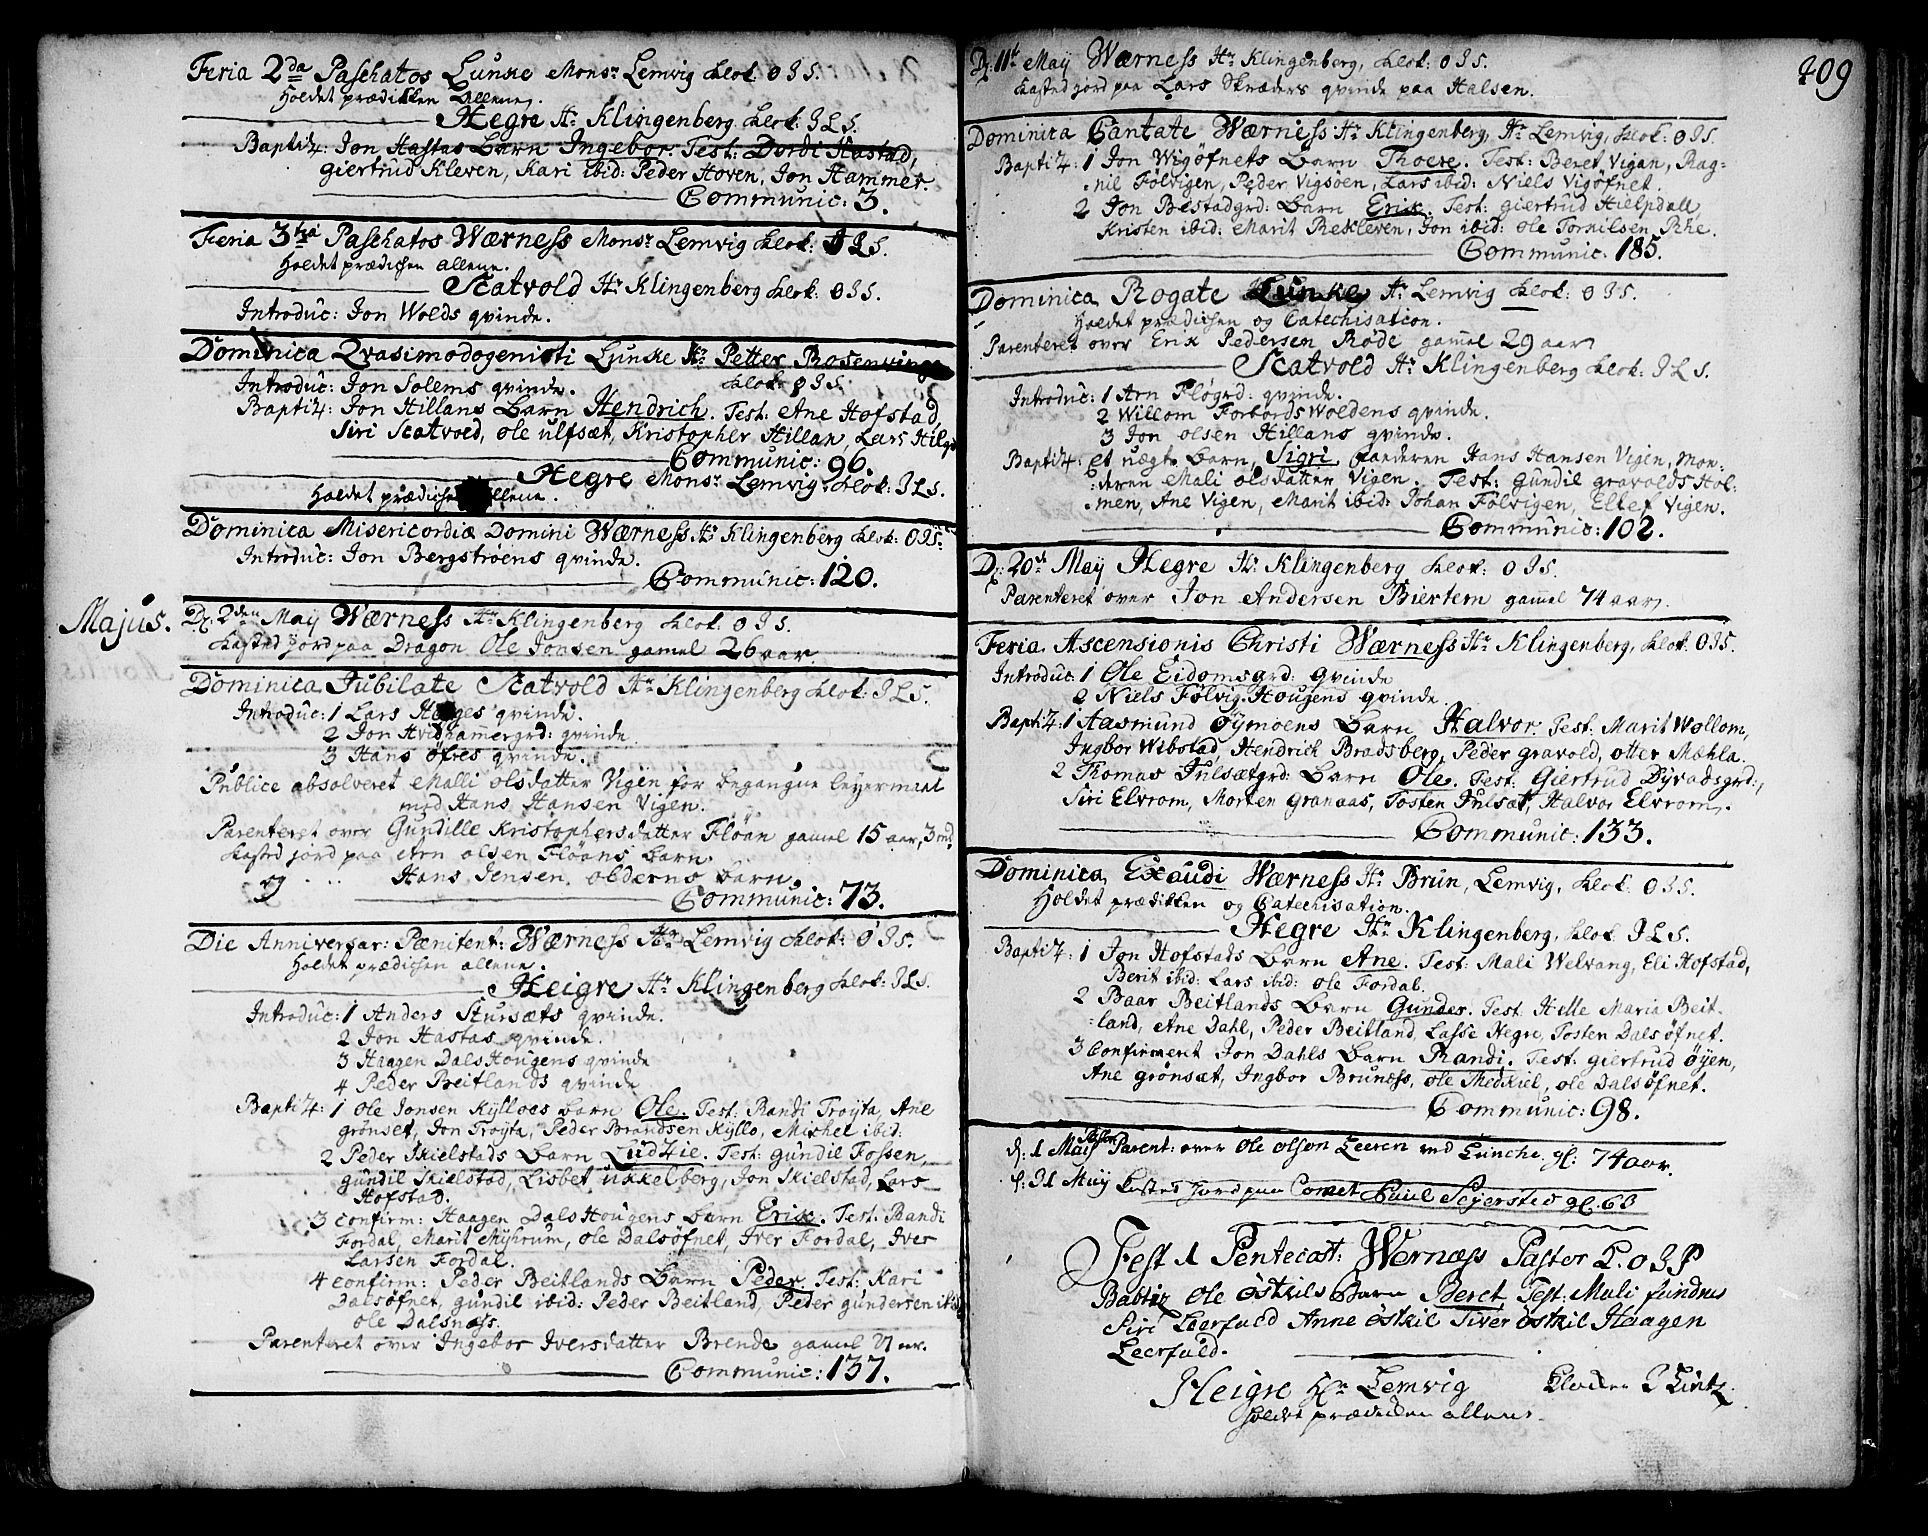 Feria 2da Paschatos Lunke Monsr Lemvig klok: O I S.
Holdet prædiken allene.
Hegre Hr Klingenberg klok: I L S.
Baptiz: Jon Hastas Barn Ingebor. Test: Dordi Hastad,
Giertrud Kleven, Kari ibid: Peder Hoven, Jon Hammer.
Communic: 3.
Feria 3tia Paschatos Wærness Monsr Lemvig klok: O I S.
Holdet prædichen allene.
Scatvold Hr Klingenberg klok: O I S.
Introduc: Jon Wolds qvinde.
Dominica Qvasimodogeniti Lunke Hr Petter Rosenvinge
klok: O I S.
Introduc: Jon Solems qvinde.
Baptiz: Jon Hillans Barn Hendrich. Test: Ane Hofstad,
Siri Scatvold, ole ulfsæt, Kristopher Hillan, Lars
Communic: 96.
Hegre Monsr Lemvig klok: I L S.
Holdet prædichen allene.
Dominica Misericordiæ Domini Wærness Hr Klingenberg klok: O I S.
Introduc: Jon Bergstrøens qvinde.
Communic: 120.
Majus. D: 2den May Wærness Hr Klingenberg klok: O I S.
Kasted jord paa Dragon Ole Jonsen gamel 26 aar.
Dominica Jubilate Scatvold Hr Klingenberg klok: I L S.
Introduc: 1 Lars qvinde.
2 Jon Hvidhammergrd: qvinde
3 Hans Øfres qvinde.
Publice absolveret Malli olsdatter Vigen for begangne leyermaal
med Hans Hansen Vigen.
Parenteret over Gundille Kristophersdatter Fløan gamel 15 aar, 3 md
Kasted jord paa Arn olsen Fløans barn.
og .. Hans Jensen barn.
Communic: 73.
Die Anniversar: Pænitent: Wærness Hr Lemvig klok: O I S.
Holdet prædichen allene.
Heigre Hr Klingenberg klok: I L S.
Introduc: 1 Anders Stursæts qvinde.
2 Jon Hastas qvinde.
3 Haagen DalsHougens qvinde
4 Peder Beitlands qvinde
Baptiz: 1 Ole Jonsen Kylloes barn Ole. Test: Randi Trøyta, Ane
grønset, Jon Trøyta, Peder Brandsen Kyllo, Michel ibid:
2 Peder Skielstads barn Ludzie. Test: gundil Fossen,
gundil Skielstad, Lisbet uckelberg, Jon Skielstad, Lars
Hofstad.
3 confirm: Haagen DalsHougens barn Erik. Test: Randi
Fordal, Marit Myhrum, ole Dalsøfnet, Iver Fordal, Iver
Larsen Fordal.
4 confirm: Peder Beitlands Barn Peder. Test: Kari
Dalsøfnet, gundil ibid: Peder Beitland, Peder gundersen ibid
ole Dalsness.
Parenteret over Ingebor Iversdatter Brende gamel
Communic: 137.
409
D: 11te May Wærness Hr Klingenberg, klok: O I S.
Kasted jord paa Lars Skræders qvinde paa Halsen.
Dominica Cantate Wærness Hr Klingenberg, Hr Lemvig, klok: O I S.
Baptiz: 1 Jon Wigøfnets Barn Thoere. Test: Beret Vigan, Rag-
:nil Følvigen, Peder Vigsøen, Lars ibid: Niels Vigøfnet.
2 Jon Bestadgrd: Barn Erik. Test: giertrud Hielpdall,
Kristen ibid: Marit Rekleven, Jon ibid: ole Tornilsen Rhe.
Communic: 185.
Dominica Rogate Lunke Hr Lemvig klok: O I S.
Holdet prædichen og Catechisation.
Parenteret over Erik Pedersen Røde gamel 29 aar
Scatvold Hr Klingenberg klok: I L S.
Introduc: 1 Arn Pløgrd: qvinde.
2 Willom Forbords Woldens qvinde.
3 Jon olsen Hillans qvinde.
Baptiz: et uægt. barn, Sigri. Faaderen Hans Hansen Vigen, Mon:
:deren Mali olsdatter Vigen. Test: Gundil gravolds Hol:
:men, Ane Vigen, Marit ibid: Johan Følvigen, Ellef Vigen.
Communic: 102.
D: 20de May Hegre Hr Klingenberg klok: O I S.
Parenteret over Jon Andersen Biertem gamel 74 aar.
Feria Ascensionis Christi Wærness Hr Klingenberg, klok: O I S.
Introduc: 1 Ole Eidomsgrd: qvinde
2 Niels Følvig:Hougens qvinde.
Baptiz: 1 Aasmund Øymoens barn Halvor. Test: Marit Wollom,
Ingbor Wibstad, Hendrich Bradsberg, Peder gravold, otter Mæhla.
2 Thomas Julsætgrd: Barn Ole. Test: Giertrud Dyvadsgrd:,
Siri Elvrom, Morten Granaas, Tosten Julsæt, Halvor Elvrom.
Communic: 133.
Dominica Exaudi Wærness Hr Brun, Lemvig, klok: O I S.
Holdet prædikken og Catechisation.
Hegre Hr Klingenberg, klok I L S.
Baptiz: 1 Jon Hofstads barn Ane. Test: Mali Welvang, Eli Hofstad,
Berit ibid: Lars ibid: ole Fordal.
2 Baar Beitlands Barn Gunder. Test: Helle Maria Beit-
:land, Ane Dahl, Peder Beitland, Lasse Hegre, Tosten Dalsøfnet.
3 confirmerit Jon Dahls Barn Randi. Test: giertrud Øyen,
Ane grønsæt, Ingbor Bruness, ole ole Dalsøfnet.
Communic: 98.
d: 1 Maij Pastor Parent: over Ole olson Leeren ved Lunche. gl: 74 aar.
d: 31 Maij Kasted jord paa Cornet Paul Sejersted gl. 63
Fest 1 Pentecost: Wernæss Pastor L. O I P
Babtiz Ole Østkils Barn Beret Test: Mali fundnes
Siri Leerfald Anne Østkil Siver Østkil Haagen
Leerfald.
Heigre Hr Lemvig Klocker I Lintz.
holdt prædicken allene.